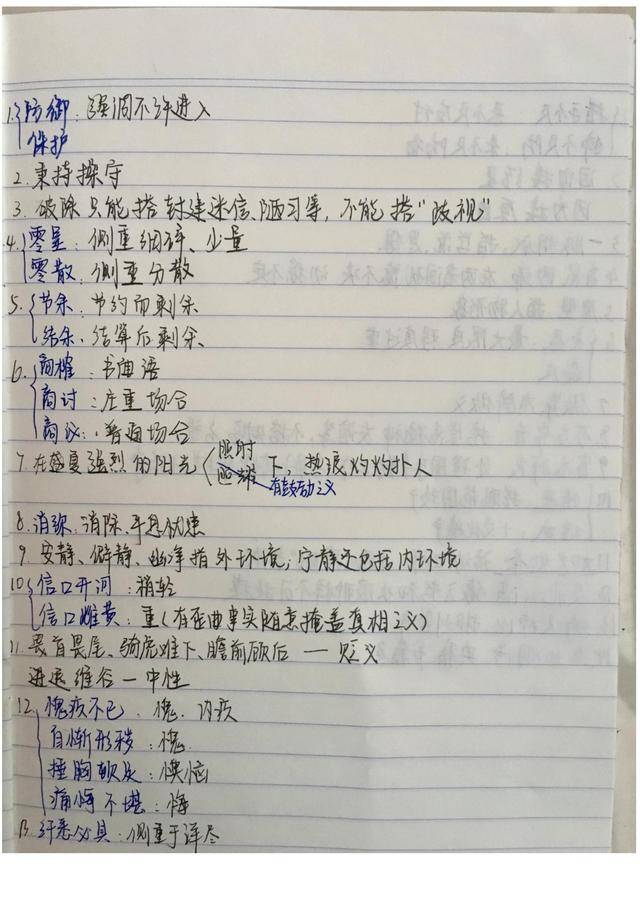 1. 防御：强调不许进入
保护
2. 秉持操守
3. 破除只能搭封建迷信、陋习等，不能搭“歧视”
4. 零星：侧重细碎、少量
零散：侧重分散
5. 节余：节约而剩余
结余：结算后剩余
6. 商榷：书面语
商讨：庄重场合
商议：普通场合
7. 在盛夏强烈的阳光 照射 下，热浪灼灼扑人
照耀 有鼓动之义
8. 消弥：消除、平息忧患
9. 安静、僻静、幽静指外环境，宁静还包括内环境
10. 信口开河：稍轻
信口雌黄：重（有歪曲事实随意掩盖真相之义）
11. 畏首畏尾、骑虎难下、瞻前顾后——贬义
进退维谷—中性
12. 愧疚不已：愧、内疚
自惭形秽：愧
捶胸顿足：懊恼
痛悔不堪：悔
13. 纤悉必具：侧重于详尽